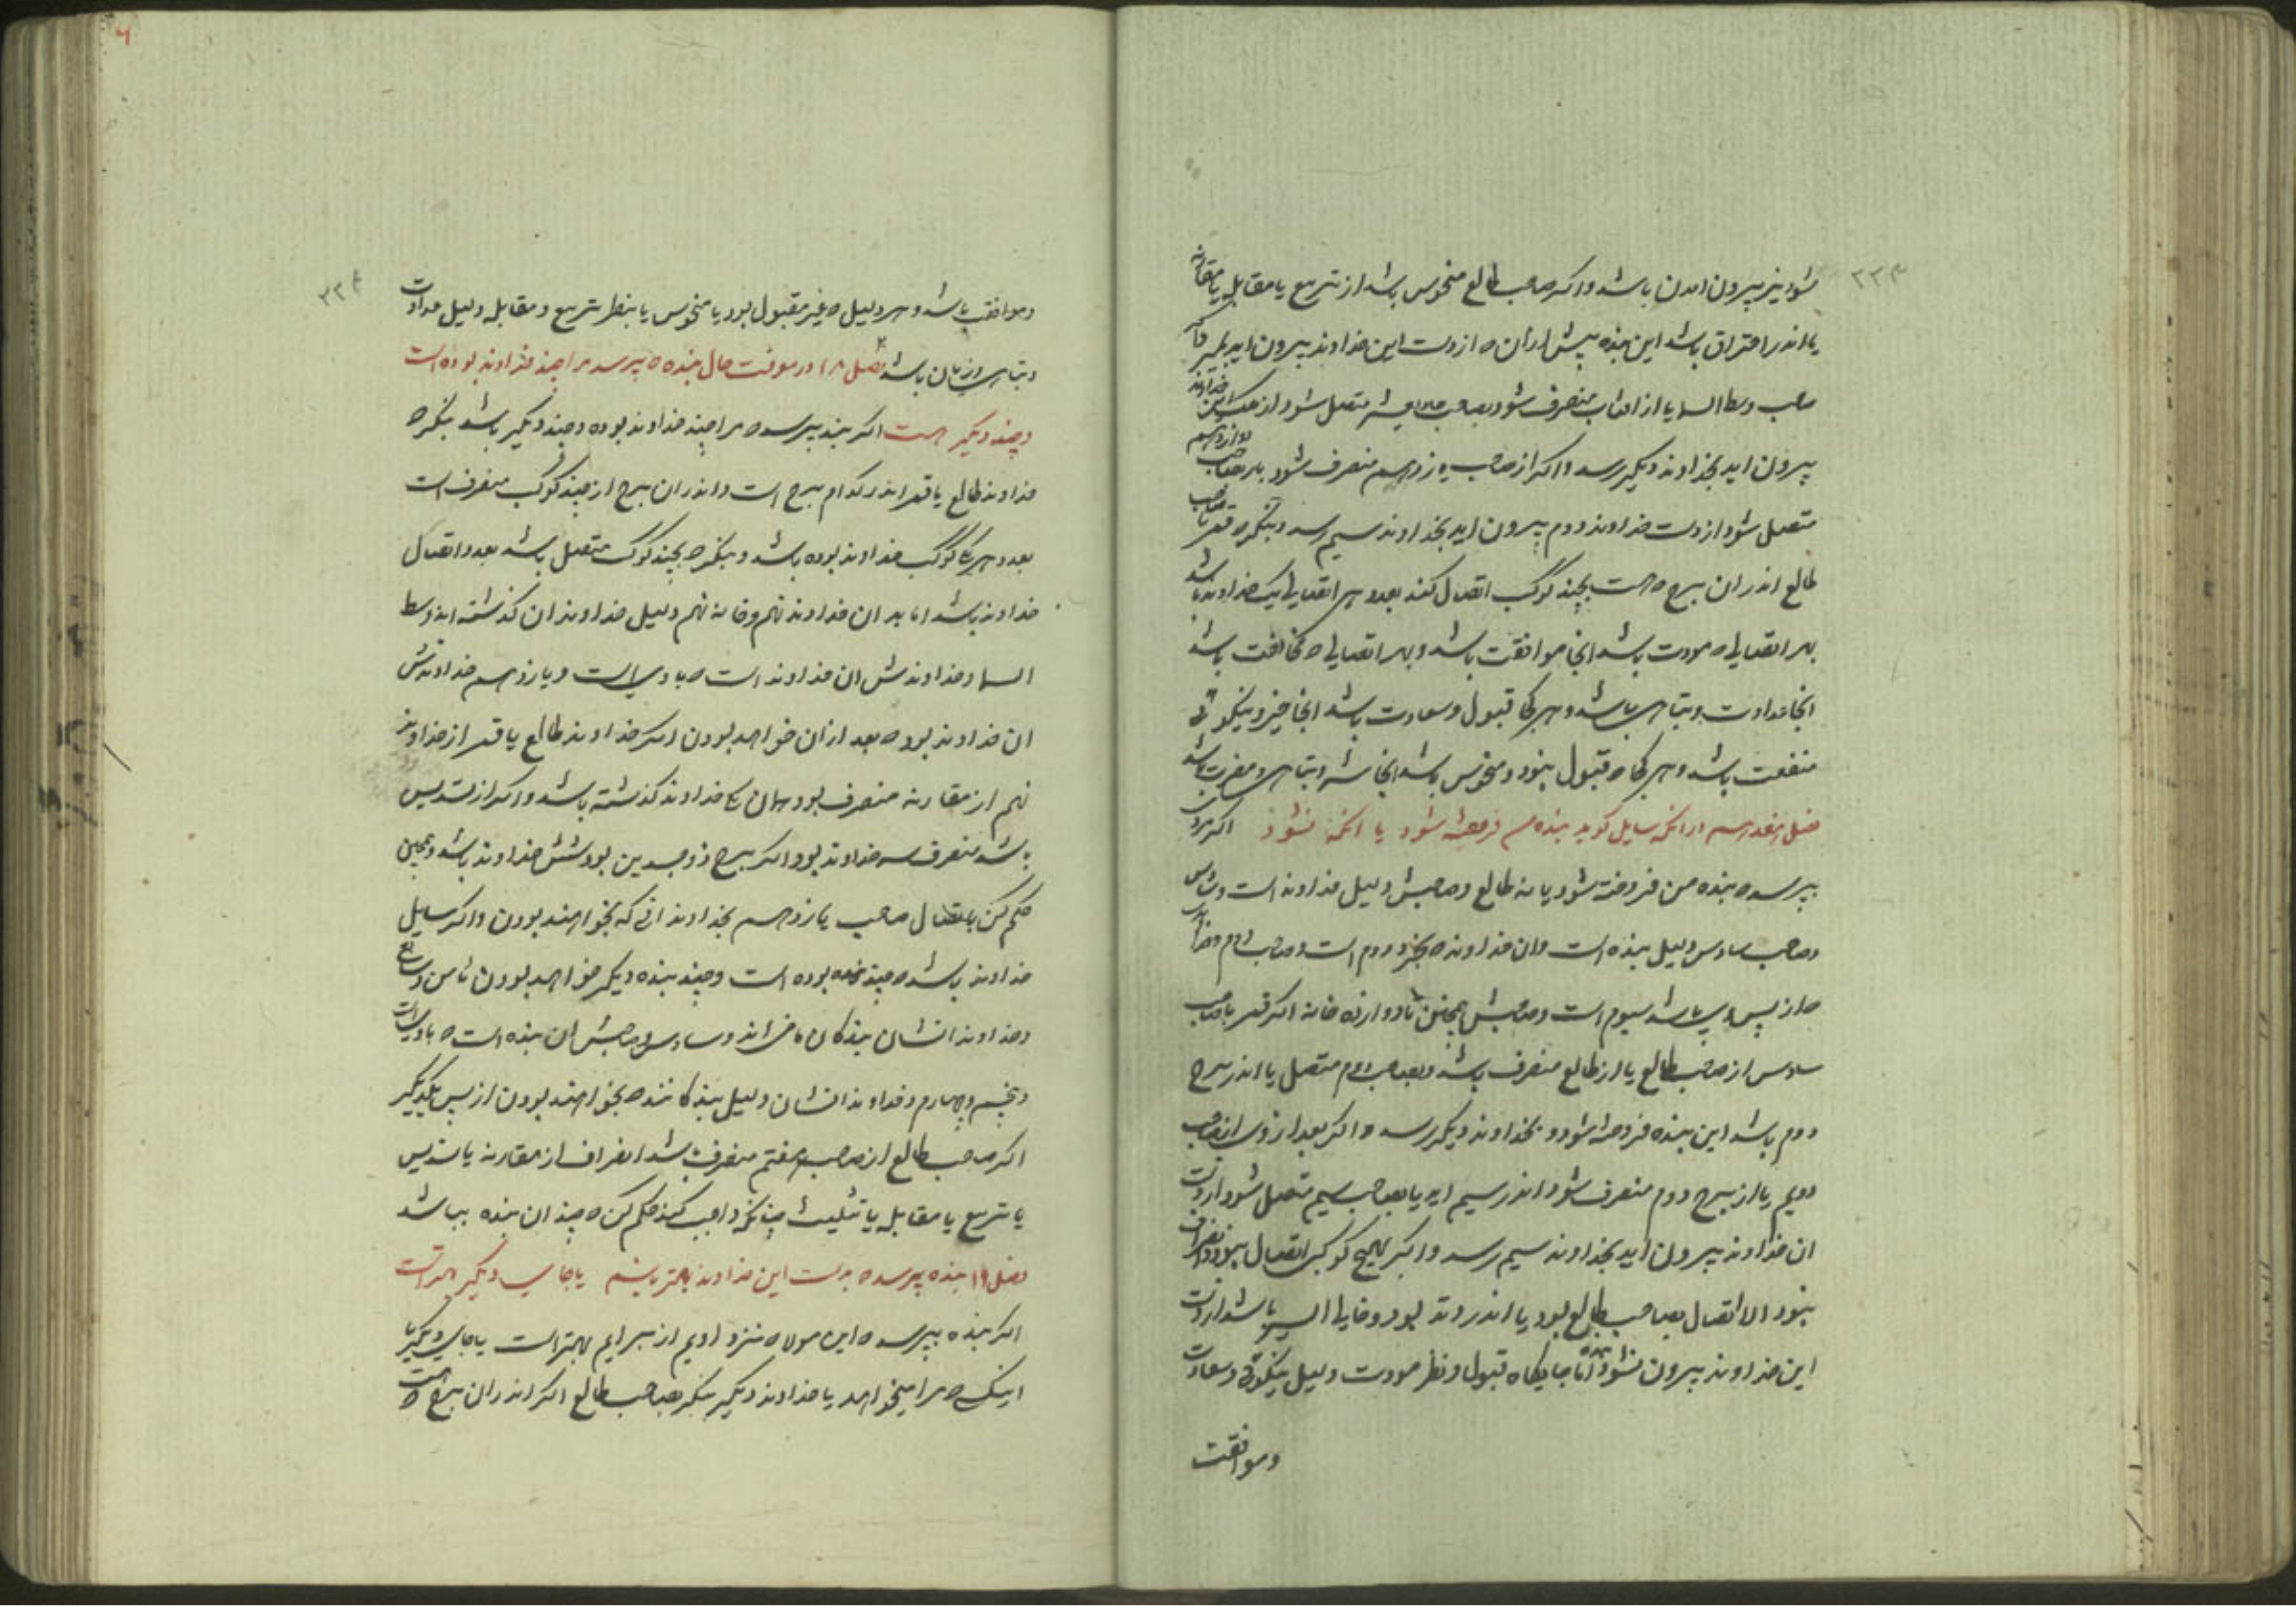 ۲۳۳
شود نیز بیرون امدن باشد و اکر صاحب طالع منحوس باشد از تربیع یا مقابله یا مقارنه
یا اندر احتراق باشد این بنده پیش از ان ه از دست این خداوند بیرون اید بمیرد و اکر
صاحب وسط السما یا از افتاب منصرف شود بصاحب متصل شود از ملک این خداوند
بیرون اید بخداوند دیکر رسد و اکر از صاحب یازدهم منصرف شود بصاحب دوازدهم
متصل شود از دست خداوند دوم بیرون اید بخداوند سیم رسد و بنکر ه قمر یا صاحب
طالع اندر ان برج ه هست بچند کوکب اتصال کند بعدد هر اتصالی یک خداوند باشد
بهر اتصالی ه مودت باشد انجا موافقت باشد و بهر اتصالی ه مخالفت باشد
انجا عداوت و تباهی باشد و هر کجا قبول و سعادت باشد انجا خیر و نیکوئی
منفعت باشد و هر کجا ه قبول نبود و منحوس باشد انجا شر و تباهی و مضرت باشد
فصل هفدهم در انکه سایل کوید بنده من فروخته شود یا انکه نشود اکر مردی
بپرسد ه بنده من فروخته شود یا نه طالع و صاحبش دلیل خداوند است و سادس
و صاحب سادس دلیل بنده است و ان خداوند ه بخرد دوم است و صاحب دوم و خداوند
ه از پس وی باشد سیوم است و صاحبش همچنین تا دوازده خانه اکر قمر با صاحب
سادس از صاحب طالع یا از طالع منصرف باشد و بصاحب دوم متصل یا اندر برج
دوم باشد این بنده فروخته شود و بخداوند دیکر رسد و اکر بعد از وی از صاحب
دویم یا از برج دوم منصرف شود اندر سیم اید یا بصاحب سیم متصل شود از دست
ان خداوند بیرون اید بخداوند سیم رسد و اکر بهیچ کوکبی اتصال نبود و انصراف
نبود الا اتصال بصاحب طالع بود یا اندر وتد بود و خالی السیر باشد از دست
این خداوند بیرون نشود بنده اما جایکاه قبول و نظر مودت دلیل نیکوئی و سعادت
و موافقت
۲۳۴
و موافقت باشد و هر دلیل ه غیر مقبول بود یا منحوس یا بنظر تربیع و مقابله دلیل عداوت
و تباهی و زیان باشد فصل ۱۸ در معرفت حال بنده ه پرسد مرا چند خداوند بوده است
و چند دیکر هست اکر بنده بپرسد ه مرا چند خداوند بوده و چند دیکر باشد بنکر ه
خداوند طالع یا قمر اندر کدام برج است و اندر ان برج از چند کوکب منصرف است
بعدد هر یک کوکب خداوند بوده باشد و بنکر ه بچند کوکب متصل باشد بعدد اتصال
خداوند باشد اما بدان خداوند نهم و خانه نهم دلیل خداوندان کذشته اند و وسط
السما و خداوندش ان خداوند است ه با وی است و یازدهم خداوندش
ان خداوند بود ه بعد از ان خواهد بودن اکر خداوند طالع یا قمر از خداوند
نهم از مقارنه منصرف بود همان یک خداوند کذشته باشد و اکر از تسدیس
باشد منصرف سه خداوند بود و اکر برج ذوجسدین بود شش خداوند باشد و همچنین
حکم کن باتصال صاحب یازدهم بخداوندانی که بخواهند بودن و اکر سایل
خداوند باشد ه چند بنده بوده است و چند بنده دیکر خواهد بودن ثامن و سابع
و خداوند انشان بندکان ماضی اند و سادس و صاحبش ان بنده است ه با وی است
و پنجم و چهارم و خداوند انشان دلیل بندکانند ه بخواهند بودن از پس یکدیکر
اکر صاحب طالع از صاحب هفتم منصرف باشد انصراف از مقارنه یا تسدیس
یا تربیع یا مقابله یا تثلیث چنانکه واجب کند حکم کن ه چندان بنده بباشد
فصل ۱۹ بنده پرسد ه بدست این خداوند بهتر باشم یا جای دیکر بهتر است
اکر بنده بپرسد ه این مولا ه نزد اویم از برایم بهتر است یا جای دیکر یا
اینک ه مرا میخواهد یا خداوند دیکر بنکر بصاحب طالع اکر اندر ان برج ه هست